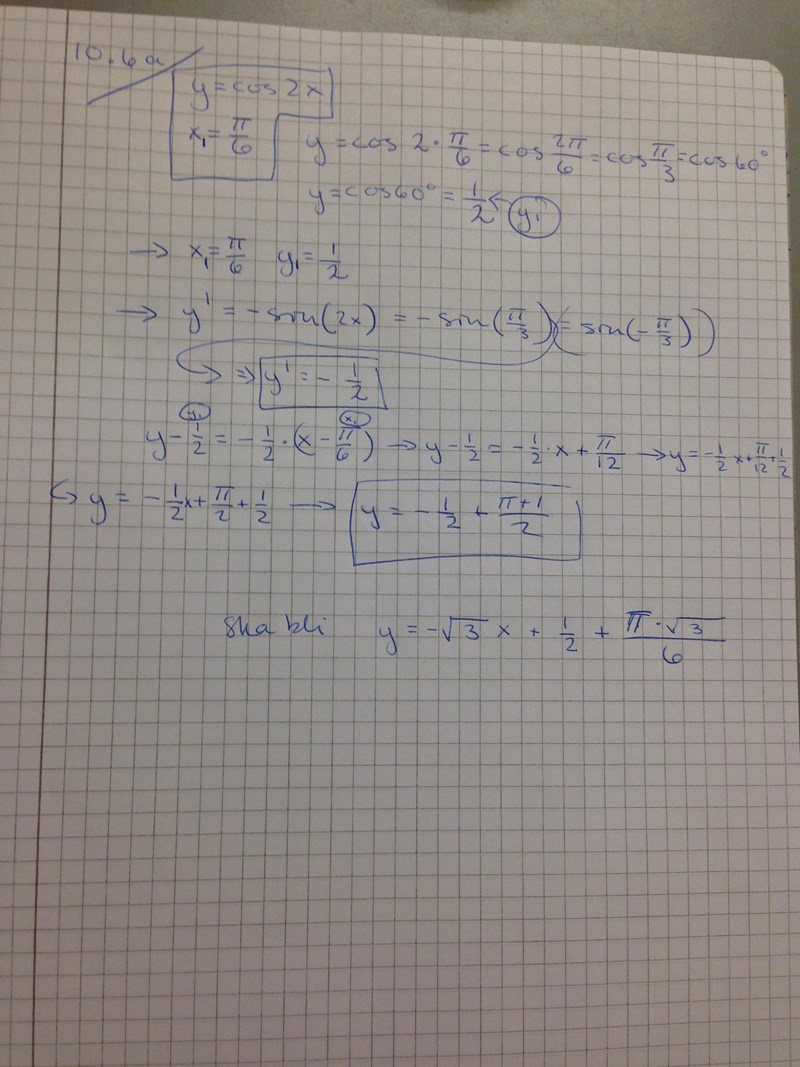 10.6a
y = cos 2x
x₁ = π/6
y = cos 2 · π/6 = cos 2π/6 = cos π/3 = cos 60°
y = cos 60° = 1/2 ← y₁
→ x₁ = π/6 y₁ = 1/2
→ y' = -sin(2x) = -sin(π/3) (= sin(-π/3))
↳ ⇒ y' = - 1/2
y₁ x₁
y - 1/2 = -1/2 · (x - π/6) → y - 1/2 = -1/2 · x + π/12 → y = -1/2 x + π/12 + 1/2
↳ y = -1/2 x + π/2 + 1/2 → y = -1/2 + π+1/2
Ska bli y = -√3 x + 1/2 + π·√3/6